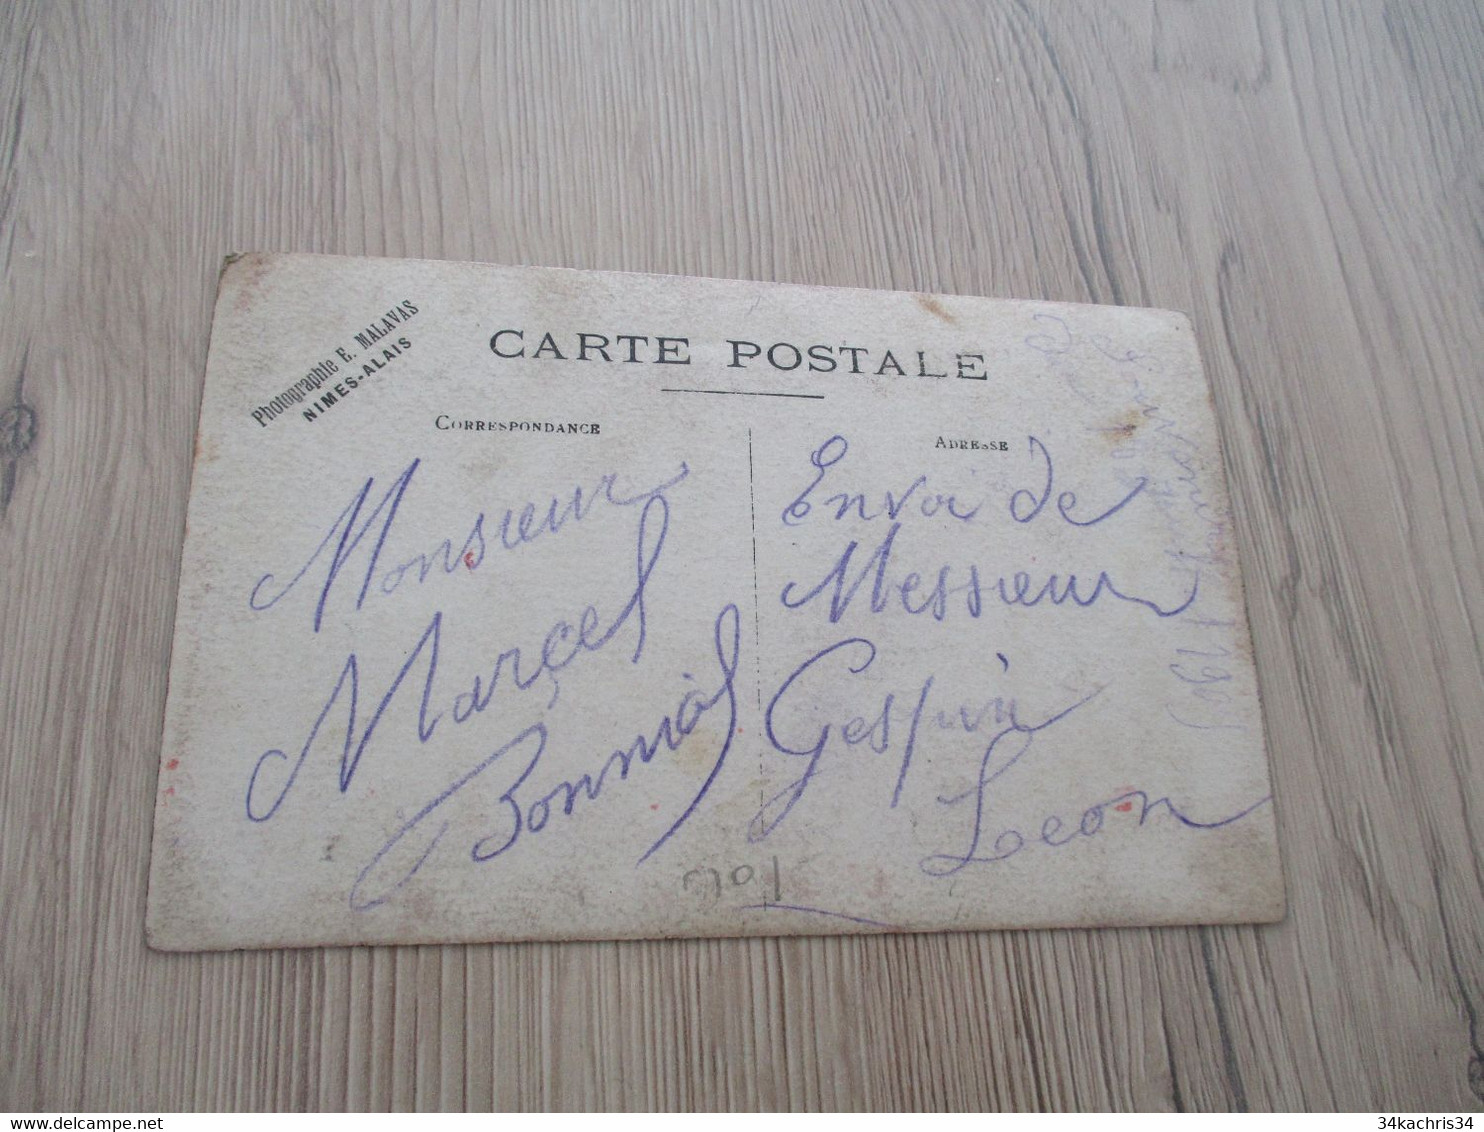 Photographie E. MALAVAS
NIMES-ALAIS
CARTE POSTALE
CORRESPONDANCE
ADRESSE
Monsieur
Marçel
Bonniol
Envoi de
Messieur
Gespin
Leon
delcampe.net
34kachris34